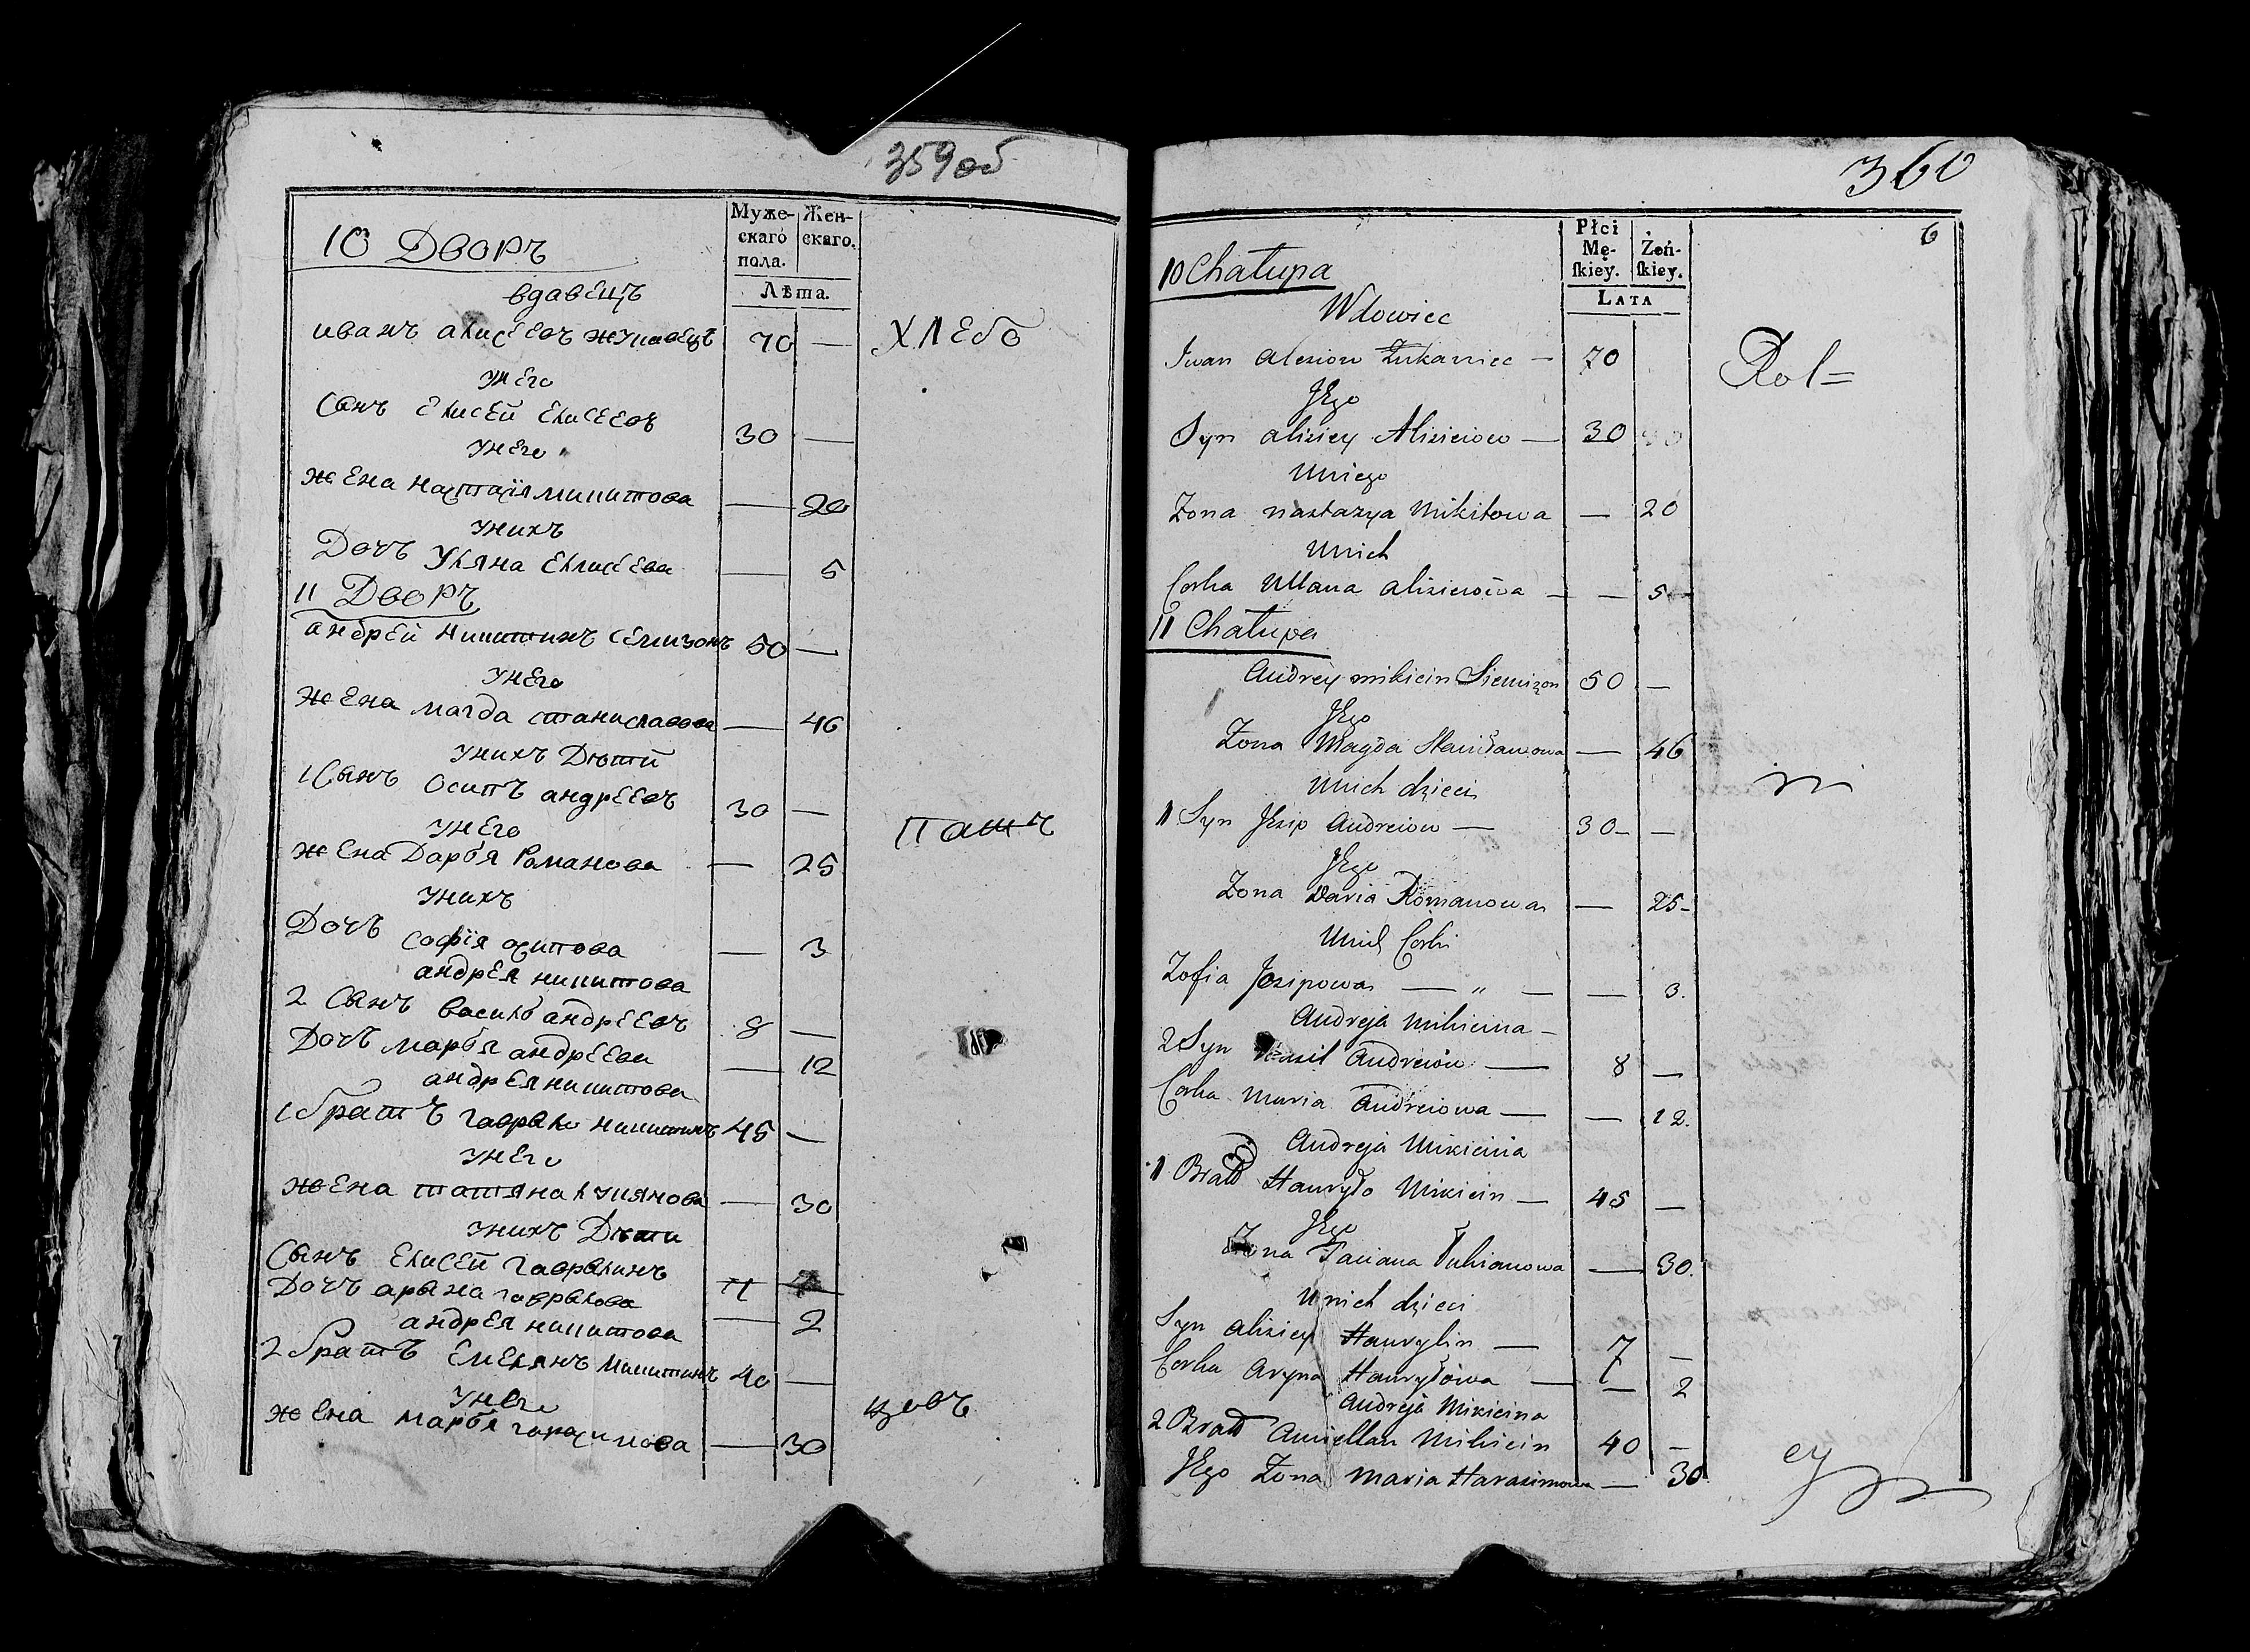 359 об
10 Дворъ
Муже- Жен-
скаго скаго.
пола.
Лѣта.
вдавецъ
иванъ алисеевъ жукавецъ 70 — хлебо
унего
Сынъ елисей елисеевъ 30 —
унего
жена настасїя микитова — 20
унихъ
Дочъ Ульяна елисеева — 5
11 Дворъ
андрей никитинъ семизонъ 50 —
унего
жена магда станиславова — 46
унихъ Дѣтй
1 Сынъ осипъ андреевъ 30 —
унего
пашъ
жена Дарья Романова — 25
унихъ
Дочъ софїя осипова — 3
андрея никитова
2 Сынъ василь андреевъ 8 —
Дочъ марья андреева — 12
андрея никитова
1 братъ гаврыло никитинъ 45 —
унего
жена татяна лукянова — 30
унихъ Дѣти
Сынъ елисей гаврылинъ
Дочъ арына гаврылова — 2
андрея никитова
2 братъ емелянъ никитинъ 40 —
унего
цовъ
жена марья гарасимова — 30
360
6
10 Chałupa
Płci
Mę- Żeń-
skiey. skiey.
LATA
Wdowiec
Iwan alesiow Żukawiec — 70
Rol=
Jego
Syn alisiey Alisieiow — 30
Uniego
Zona nastazya Mikitowa — 20
Unich
Corka Ullana alisieiowa — — 5
11 Chałupa
Andrey mikicin Siemizon 50 —
Jego
Zona Magda Stanisławowa — 46
Unich dzieci
ni
1 Syn Jezip Andreiow — 30 — —
Jego
Zona Daria Romanowa — 25 —
Unich Corki
Zofia Jozipowa — „ — — 3.
Andreja Mikicina —
2 Syn Wasil Andreiow — 8 —
Corka Maria Andreiowa — — 12.
Andreja Mikicina
1 Brat Hauryło Mikicin — 45 —
Jego
Zona Taciana Łukianowa — 30.
Unich dzieci
Syn alisiey Haurylin — 7 —
Corka Aryna Hauryłowa — — 2
Andreja Mikicina
2 Brat Amiellan Mikicin 40 —
Jego Zona Maria Harasimowa — 30
cy